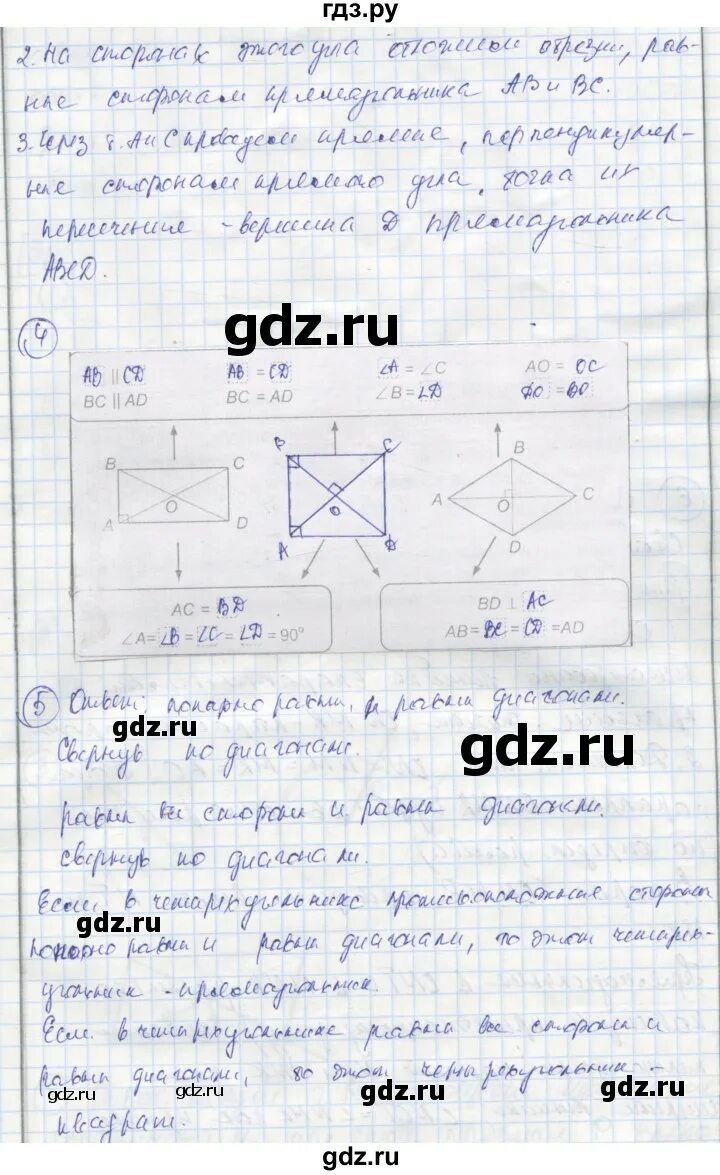 гдз.ру
2. На сторонах этого угла отложим отрезки, рав-
ные сторонам прямоугольника AB и BC.
3. Через т. A и C проведем прямые, перпендикуляр-
ные сторонам прямого угла, точка их
пересечения - вершина D прямоугольника
ABCD.
4
gdz.ru
AB || CD AB = CD ∠A = ∠C AO = OC
BC || AD BC = AD ∠B = ∠D DO = BO
B C A D O
B C A D O
B A C D O
AC = BD
∠A = ∠B = ∠C = ∠D = 90°
BD ⊥ AC
AB = BC = CD = AD
5 Ответ: попарно равны, и равны диагонали.
gdz.ru
Свернуть по диагонали.
gdz.ru
равны все стороны и равны диагонали.
свернуть по диагонали.
Если в четырехугольнике противоположные стороны
gdz.ru
попарно равны и равны диагонали, то этот четырех-
угольник - прямоугольник.
Если в четырехугольнике равны все стороны и
равны диагонали, то этот четырехугольник -
gdz.ru gdz.ru gdz.ru
квадрат.
gdz.ru